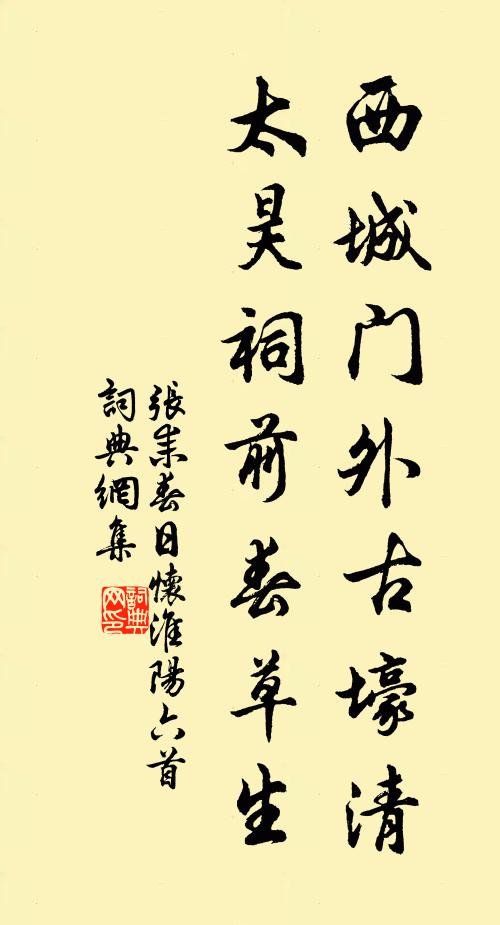 西城门外古壕清
太昊祠前春草生
張耒春日懷淮陽六首
詞典網集
詞典
网印